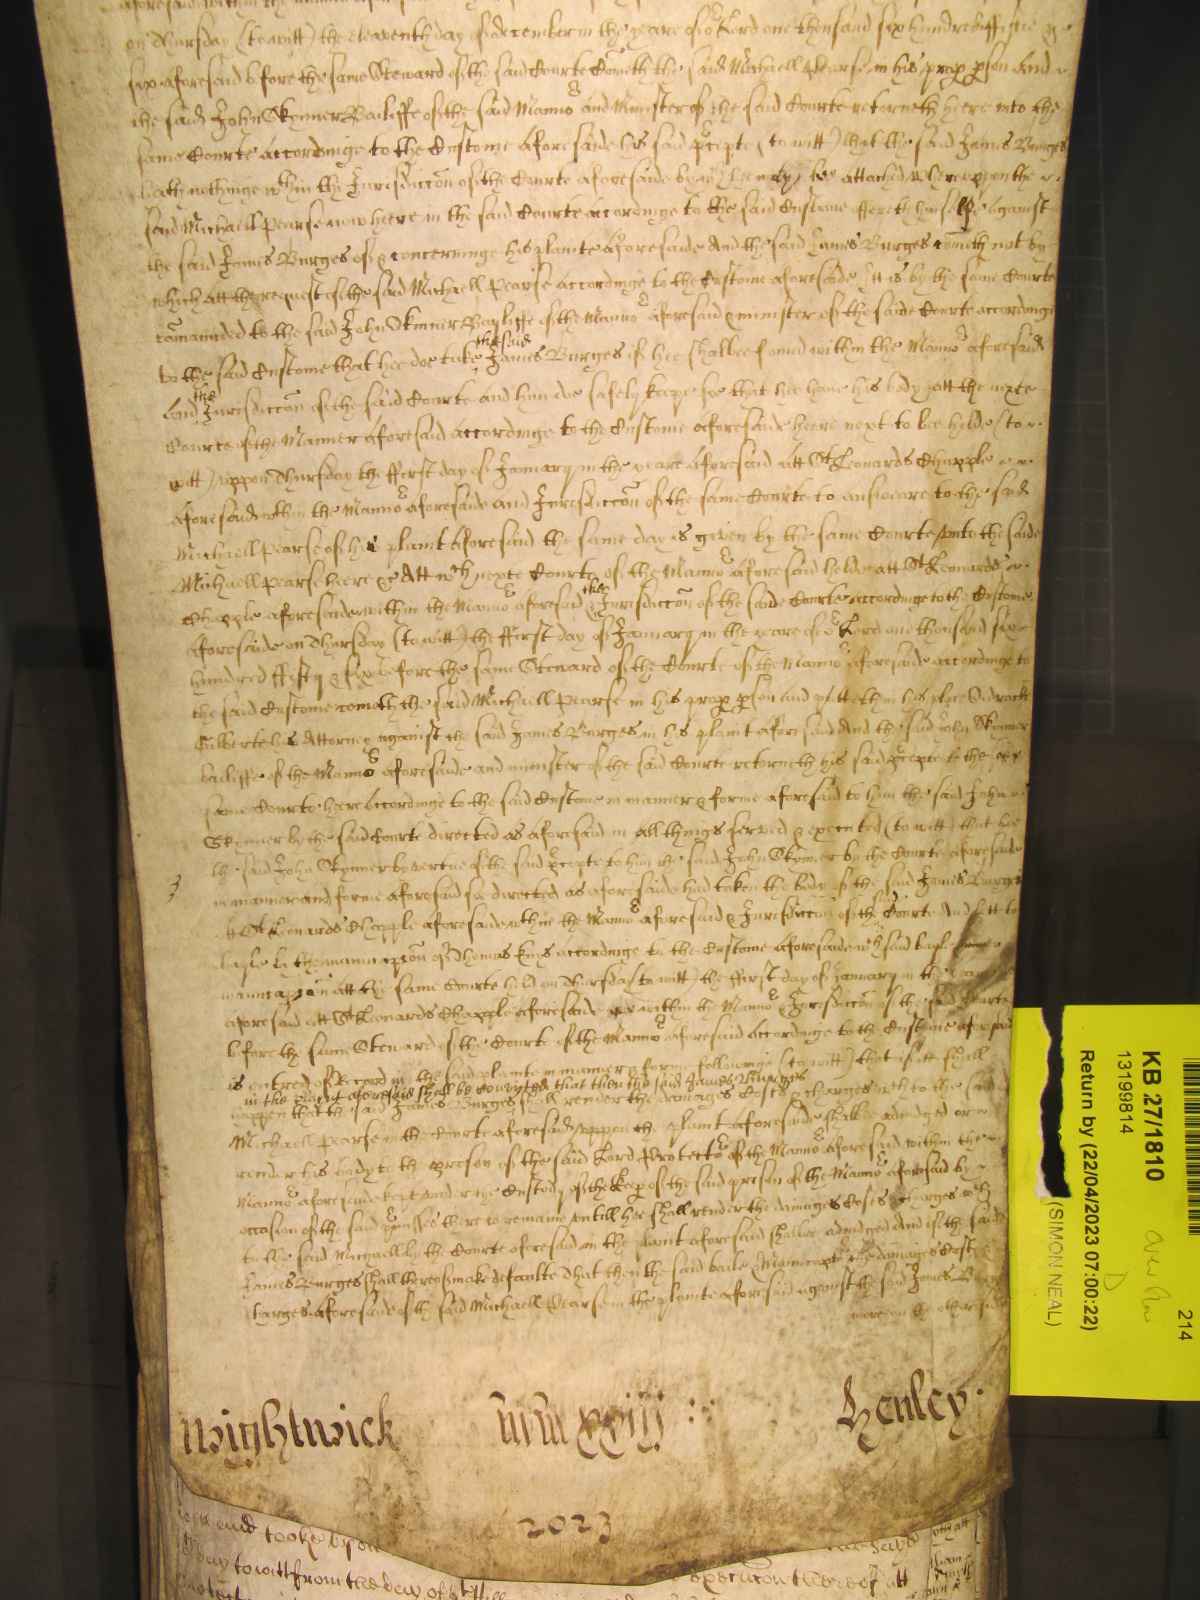 on Thursday (to witt) the eleaventh day of december in the yeare of oʳ Lord one thousand six hundred fiftie &
six aforesaid before the same Steward of the said Courte Cometh the said Michaell Pearse in his prop pson And
the said John Skynner Bailiffe of the said Mannoʳ and Minister of the said Courte retorneth heere into the
same Courte accordinge to the Custome aforesaid his said pcepte (to witt) that the said James Burges
hath nothinge wᵗhin the Jurisdiccōn of the Courte aforesaide by wᶜʰ hee may bee attached wherevppon the
said Michaell Pearse now heere in the said Courte accordinge to the said Custome offereth himselfe against
the said James Burges of & concerninge his plainte aforesaide And the said James Burges cometh not by
which att the request of the said Michaell Pearse accordinge to the Custome aforesaide Itt is by the same Courte
comaunded to the said John Skinner Bayliffe of the Mannoʳ aforesaid & minister of the saide Courte accordinge
to the said Custome that hee doe take the said James Burges if hee shalbee found within the Mannoʳ aforesaid
And the Jurisdiccōn of the said Courte and him doe safely keepe soe that hee haue his body att the nexte
Courte of the Manner aforesaid accordinge to the Custome aforesaide heere next to bee helde (to
witt) vppon Thursday the ffirst day of January in the yeare aforesaid att Sᵗ Leonards Chapple
aforesaid within the Mannoʳ aforesaid and Jurisdiccōn of the same Courte to answeare to the said
Michaell Pearse of his plaint aforesaid the same day is given by the same Courte vnto the saide
Michaell Pearse heere &c Att wᶜʰ nexte Courte of the Mannoʳ aforesaid helde att Sᵗ Leonards
Chapple aforesaide within the Mannoʳ aforesaid & the Jurisdiccōn of the saide Courte accordinge to the Custome
aforesaide on Thursday (to witt) the ffirst day of January in the yeare of oʳ Lord one thousand six
hundred fifty & six before the same Steward of the Courte of the Mannoʳ aforesaide accordinge to
the said Custome cometh the said Michaell Pearse in his prop pson and putteth in his place
Gilberte his Attorney against the said James Burges in his plaint aforesaid And the said John Skynner
bailiffe of the Mannoʳ aforesaide and minister of the said Courte retorneth his said pcepte to the
same Courte heere accordinge to the said Custome in manner & forme aforesaid to him the said John
Skynner by the said Courte directed as aforesaid in all things served & executed (to witt) that hee
the said John Skynner by vertue of the said pcepte to him the said John Skynner by the Courte aforesaide
in manner and forme aforesaid soe directed as aforesaide had taken the body of the said James Burges
att Sᵗ Leonards Chapple aforesaide within the Mannoʳ aforesaid & Jurisdiccōn of the Courte And lett to
bayle by the manucapcōn of Thomas accordinge to the Custome aforesaide wᶜʰ said bayle
manucapcōn att the same Courte held on Thursday (to witt) the ffirst day of January in the yeare
aforesaid att Sᵗ Leonards Chapple aforesaide within the Mannoʳ & Jurisdiccōn of the said Courte
before the same Steward of the Courte of the Mannoʳ aforesaid accordinge to the Custome aforesaid
is entred of Record in the said plainte in manner & forme followinge (to witt) that if itt shall
in the plaint aforesaid shall be convicted that then the said James Burges
happen that the said James Burges shall render the damages Costs & charges wᶜʰ to the said
Michaell Pearse in the Courte aforesaid vppon the plaint aforesaide shalbee adiudged or
render his body to the prison of the said Lord Protectoʳ of the Mannoʳ aforesaid within the
Mannoʳ aforesaide kept vnder the Custody of the keep of the said prison of the Mannoʳ aforesaid by
occasion of the said pmisses there to remaine vntill hee shall render the damages Costs & charges wᶜʰ
to the said Michaell by the Courte aforesaid in the plaint aforesaid shalbee adiudged And if the said
James Burges shall thereof make defaulte That then the said baile & Manucaptoʳ the damages Costs &
charges aforesaide of the said Michaell Pearse in the plainte aforesaid against the said James
more on the other side
Wightwick
Henley
2023
KB 27/1810
13199814
Return by (22/04/2023 07:00:22)
(SIMON NEAL)
214